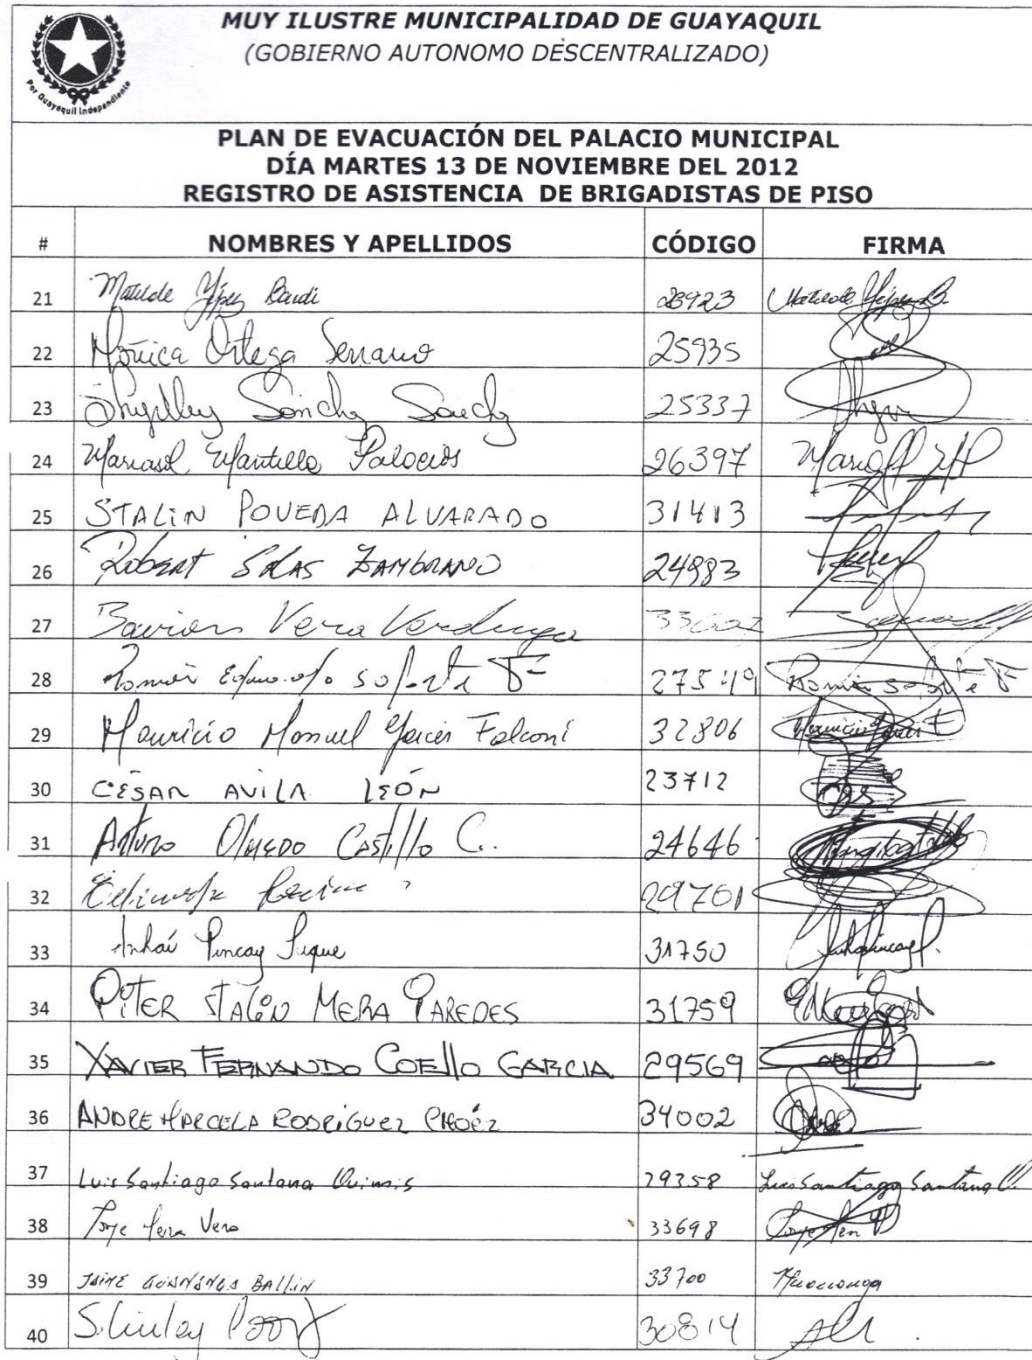 MUY ILUSTRE MUNICIPALIDAD DE GUAYAQUIL
(GOBIERNO AUTONOMO DESCENTRALIZADO)
Por Guayaquil Independiente
PLAN DE EVACUACIÓN DEL PALACIO MUNICIPAL
DÍA MARTES 13 DE NOVIEMBRE DEL 2012
REGISTRO DE ASISTENCIA DE BRIGADISTAS DE PISO
# NOMBRES Y APELLIDOS CÓDIGO FIRMA
21 Matilde Yépez 28923 Matilde Yépez B.
22 Mónica Ortega Serrano 25935
23 Shyrlley Sánchez Sánchez 25337
24 Mariasol Mantilla Palacios 26397
25 STALIN POVEDA ALVARADO 31413
26 Robert SALAS ZAMBRANO 24983
27 Vera Verduga
28 27549
29 Mauricio Manuel Falconí 32806
30 CÉSAR AVILA LEÓN 23712
31 Arturo Olmedo Castillo C. 24646
32 29701
33 Pincay 31750
34 PITER STALIN MERA PAREDES 31759
35 XAVIER FERNANDO COELLO GARCIA 29569
36 ANDRE MARCELA RODRIGUEZ CHOÉZ 34002
37 Luis Santiago Santana Quimis 29358 Luis Santiago Santana Q.
38 Jorge Vera 33698
39 JAIME BALLIN 33700
40 Shirley 30814